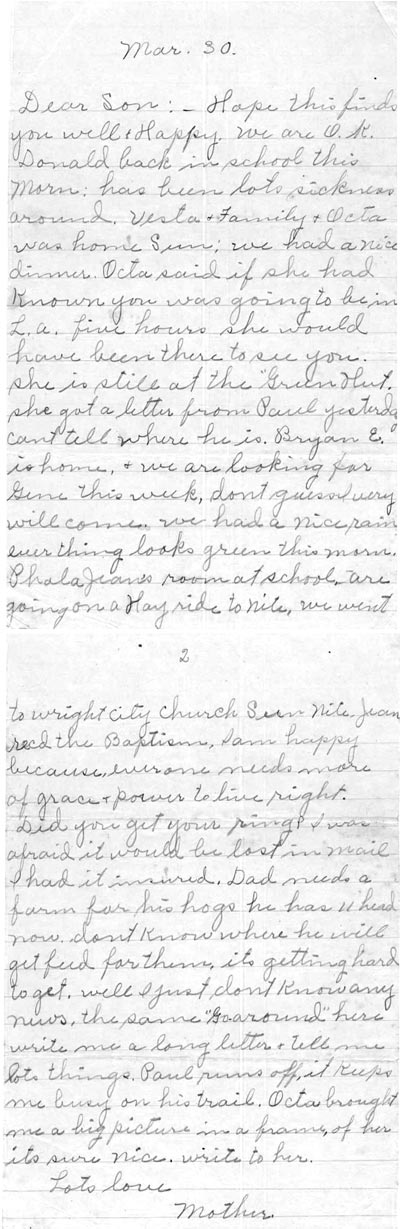 Mar. 30.
Dear Son: - Hope this finds
you well & Happy. We are O.K.
Donald back in school this
Morn: has been lots sickness
around. Vesta & Family & Octa
was home Sun; we had a nice
dinner. Octa said if she had
Known you was going to be in
L.A. five hours she would
have been there to see you.
She is still at the "Green Hut.
She got a letter from Paul yesterday
cant tell where he is. Bryan E.
is home, & we are looking for
Gene this week, dont guess Avery
will come. we had a nice rain
ever thing looks green this morn.
Phala Jeans room at school, are
going on a Hay ride to nite, we went
2
to wright city church Sun Nite. Jean
recd the Baptism, I am happy
because, everone needs more
of grace & power to live right.
Did you get your ring? I was
afraid it would be lost in mail
I had it insured. Dad needs a
farm for his hogs he has 11 head
now. dont Know where he will
get feed for them, its getting hard
to get. well I just dont Know any
news, the same "Go around" here
write me a long letter & tell me
lots things. Paul runs off, it Keeps
me busy on his trail. Octa brought
me a big picture in a frame, of her
its sure nice. write to her.
Lots love
Mother.